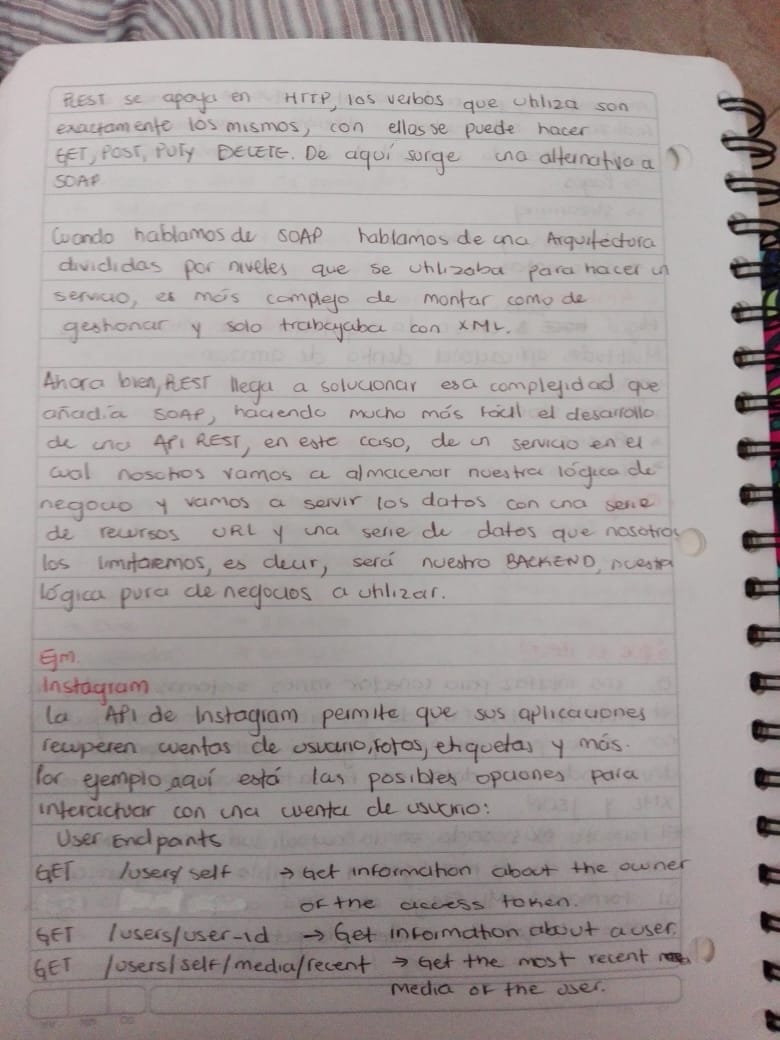 REST se apoya en HTTP, los verbos que utiliza son
exactamente los mismos, con ellos se puede hacer
GET, POST, PUT y DELETE. De aquí surge una alternativa a
SOAP.
Cuando hablamos de SOAP hablamos de una Arquitectura
divididas por niveles que se utilizaba para hacer un
servicio, es más complejo de montar como de
gestionar y solo trabajaba con XML.
Ahora bien, REST llega a solucionar esa complejidad que
añadía SOAP, haciendo mucho más fácil el desarrollo
de una API REST, en este caso, de un servicio en el
cual nosotros vamos a almacenar nuestra lógica de
negocio y vamos a servir los datos con una serie
de recursos URL y una serie de datos que nosotros
los limitaremos, es decir, será nuestro BACKEND, nuestra
lógica pura de negocios a utilizar.
Ejm.
Instagram
La API de Instagram permite que sus aplicaciones
recuperen cuentas de usuario, fotos, etiquetas y más.
Por ejemplo, aquí está las posibles opciones para
interactuar con una cuenta de usuario:
User Endpoints
GET /users/self → Get information about the owner
of the access token.
GET /users/user-id → Get information about a user.
GET /users/self/media/recent → Get the most recent
media of the user.